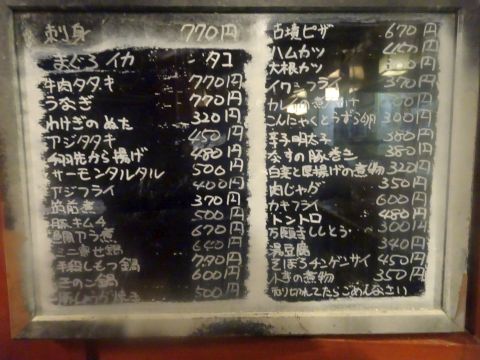 刺身 770円
まぐろ イカ タコ
牛肉タタキ 770円
うなぎ 770円
わけぎのぬた 320円
アジタタキ 450円
手羽先から揚げ 480円
サーモンタルタル 500円
アジフライ 400円
筑前煮 370円
豚キムチ 500円
魚アラ煮 670円
寄せ鍋 640円
もつ鍋 780円
きのこ鍋 600円
500円
古漬ピザ 670円
ハムカツ 円
大根カツ 円
フライ 円
カレー 円
こんにゃくとうずら卵 300円
辛子明太子 380円
なすの豚巻き 380円
白菜と厚揚げの煮物 320円
肉じゃが 350円
カキフライ 600円
トントロ 480円
万願寺ししとう 300円
湯豆腐 340円
そぼろチンゲンサイ 450円
小芋の煮物 350円
売り切れてたらごめんなさい